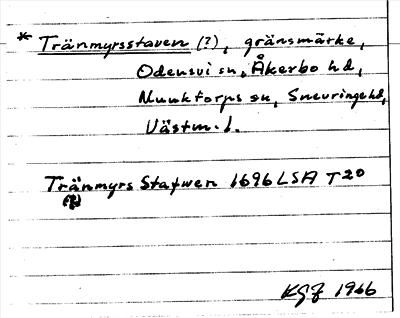 * Tränmyrsstaven (?), gränsmärke,
Odensvi sn, Åkerbo hd,
Munktorps sn, Snevringe hd,
Västm. l.
Tränmyrs Stafwen 1696 LSA T20
(?)
KGF 1966